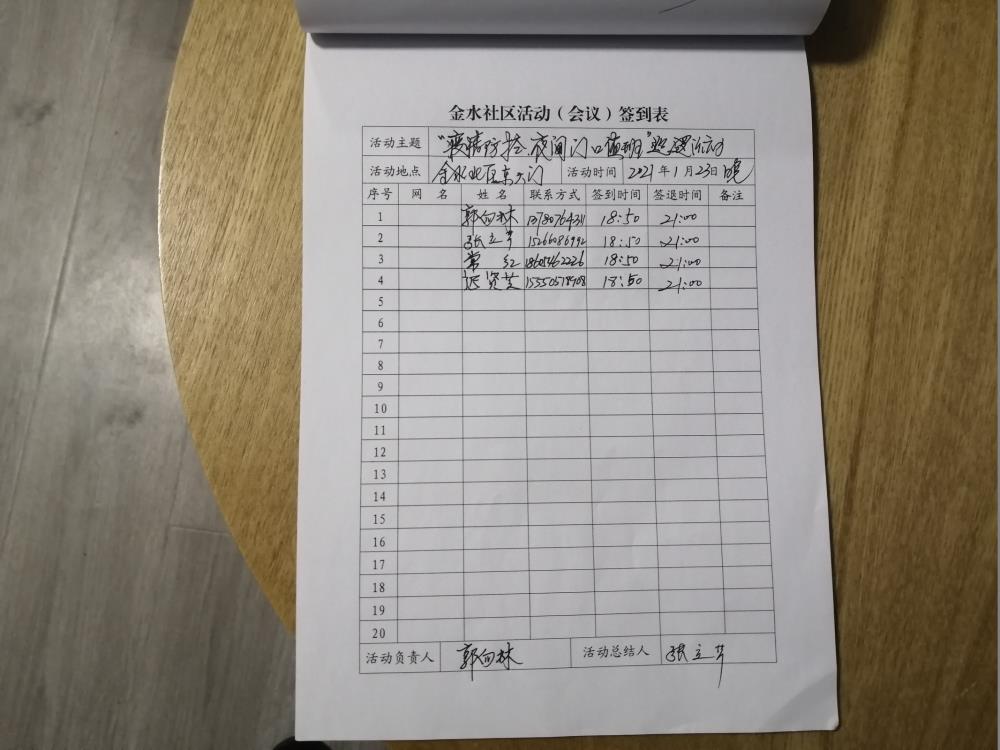 金水社区活动（会议）签到表
活动主题 "疫情防控.夜间门口值班"巡逻活动
活动地点 金水北区东大门 活动时间 2021年1月23日晚
序号 网 名 姓 名 联系方式 签到时间 签退时间 备注
1 郭向林 13780764311 18:50 21:00
2 张立芹 15266086992 18:50 21:00
3 常红 18:50 21:00
4 18:50 21:00
5
6
7
8
9
10
11
12
13
14
15
16
17
18
19
20
活动负责人 郭向林 活动总结人 张立芹